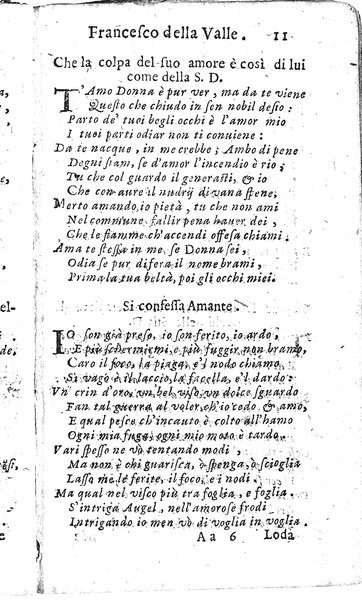 Francesco della Valle. 11
Che la colpa del suo amore è così di lui
come della S. D.
T'Amo Donna è pur ver, ma da te viene
Questo che chiudo in sen nobil desio:
Parto de' tuoi begli occhi è l'amor mio
I tuoi parti odiar non ti conuiene:
Da te nacque, in me crebbe; Ambo di pene
Degni siam, se d'amor l'incendio è rio;
Tu che col guardo il generasti, & io
Che con aure il nudrij di vana spene;
Merto amando io pietà, tu che non ami
Nel commune fallir pena hauer dei,
Che le fiamme ch'accendi offesa chiami:
Ama te stessa in me, se Donna sei,
Odia se pur di fera il nome brami,
Prima la tua beltà, poi gli occhi miei.
Si confessa Amante.
IO son già preso, io son ferito, io ardo,
E più schermirmi, e più fuggir non bramo,
Caro il foco, la piaga, e'l nodo chiamo,
Si vago è il laccio, la facella, e'l dardo:
Vn' crin d'oro, vn bel viso, vn dolce sguardo
Fan tal guerra al voler, ch'io cedo & amo,
E qual pesce ch'incauto è colto all'hamo
Ogni mia fuga, ogni mio moto è tardo.
Vari spesso ne vò tentando modi,
Ma non è chi guarisca, ò spenga, ò scioglia
Lasso me le ferite, il foco, e i nodi.
Ma qual nel visco più tra foglia, e foglia.
S'intriga Augel, nell'amorose frodi
Intrigando io men vò di voglia in voglia.
Aa 6 Loda